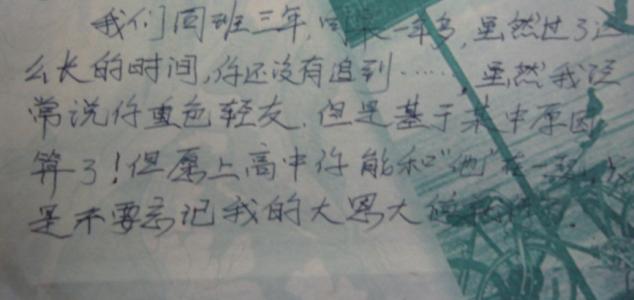 我们同班三年,同桌一年多,虽然过了这
么长的时间,你还没有追到……,虽然我经
常说你重色轻友.但是基于某中原因
算了!但愿上高中你能和“他”在一起,
是不要忘记我的大恩大德